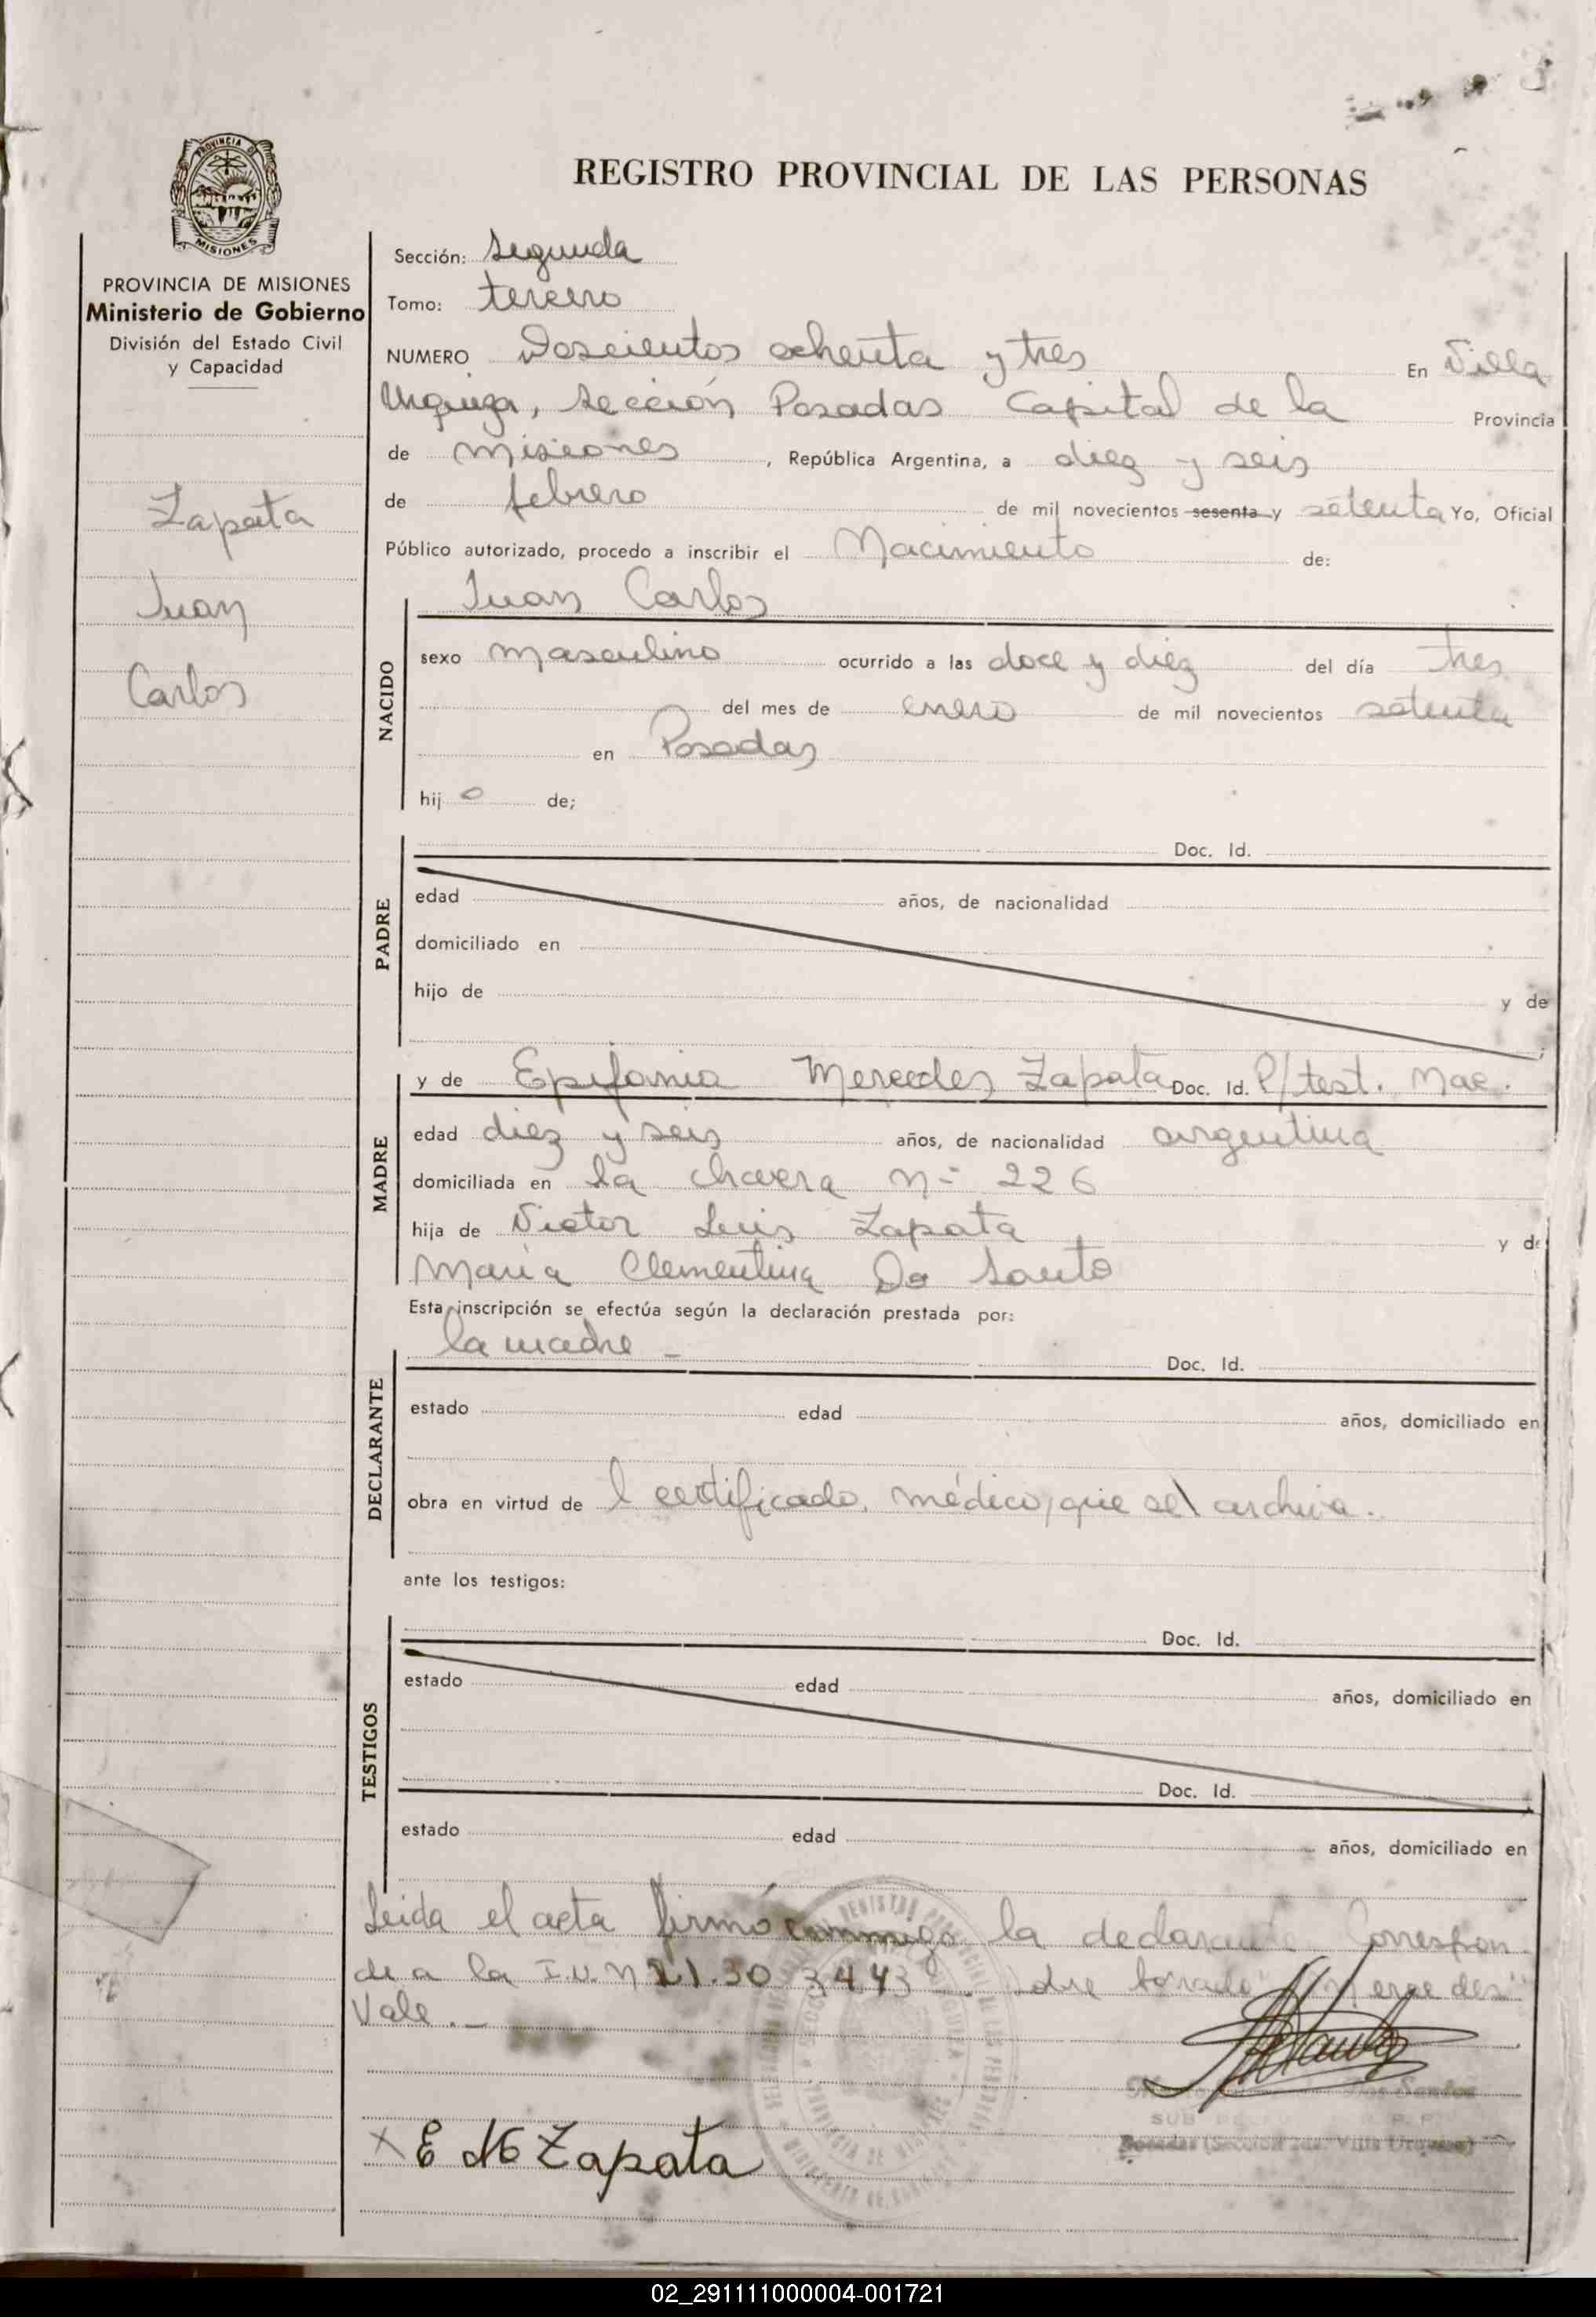 REGISTRO PROVINCIAL DE LAS PERSONAS
PROVINCIA DE MISIONES
PROVINCIA DE MISIONES
Ministerio de Gobierno
División del Estado Civil
y Capacidad
Zapata
Juan
Carlos
Sección: Segunda
Tomo: tercero
NUMERO Doscientos ochenta y tres En Villa
Urquiza, sección Posadas Capital de la Provincia
de Misiones, República Argentina, a diez y seis
de febrero de mil novecientos sesenta y setenta Yo, Oficial
Público autorizado, procedo a inscribir el Nacimiento de:
NACIDO
Juan Carlos
sexo masculino ocurrido a las doce y diez del día tres
del mes de enero de mil novecientos setenta
en Posadas
hij o de;
PADRE
Doc. Id.
edad años, de nacionalidad
domiciliado en
hijo de y de
MADRE
y de Epifania Mercedes Zapata Doc. Id. P/test. Nac.
edad diez y seis años, de nacionalidad argentina
domiciliada en la chacra n- 226
hija de Victor Luis Zapata y de
Maria Clementina Do Santo
Esta inscripción se efectúa según la declaración prestada por:
DECLARANTE
la madre - Doc. Id.
estado edad años, domiciliado en
obra en virtud de l certificado médico, que se archiva.
ante los testigos:
TESTIGOS
Doc. Id.
estado edad años, domiciliado en
Doc. Id.
estado edad años, domiciliado en
Leida el acta firmó conmigo la declarante Correspon-
de a la I.U.N 21.30 3443 Sobre borrado "Mercedes"
Vale.-
SUB
Posadas (Sección 2da. Villa Urquiza)
x E M Zapata
02_291111000004-001721